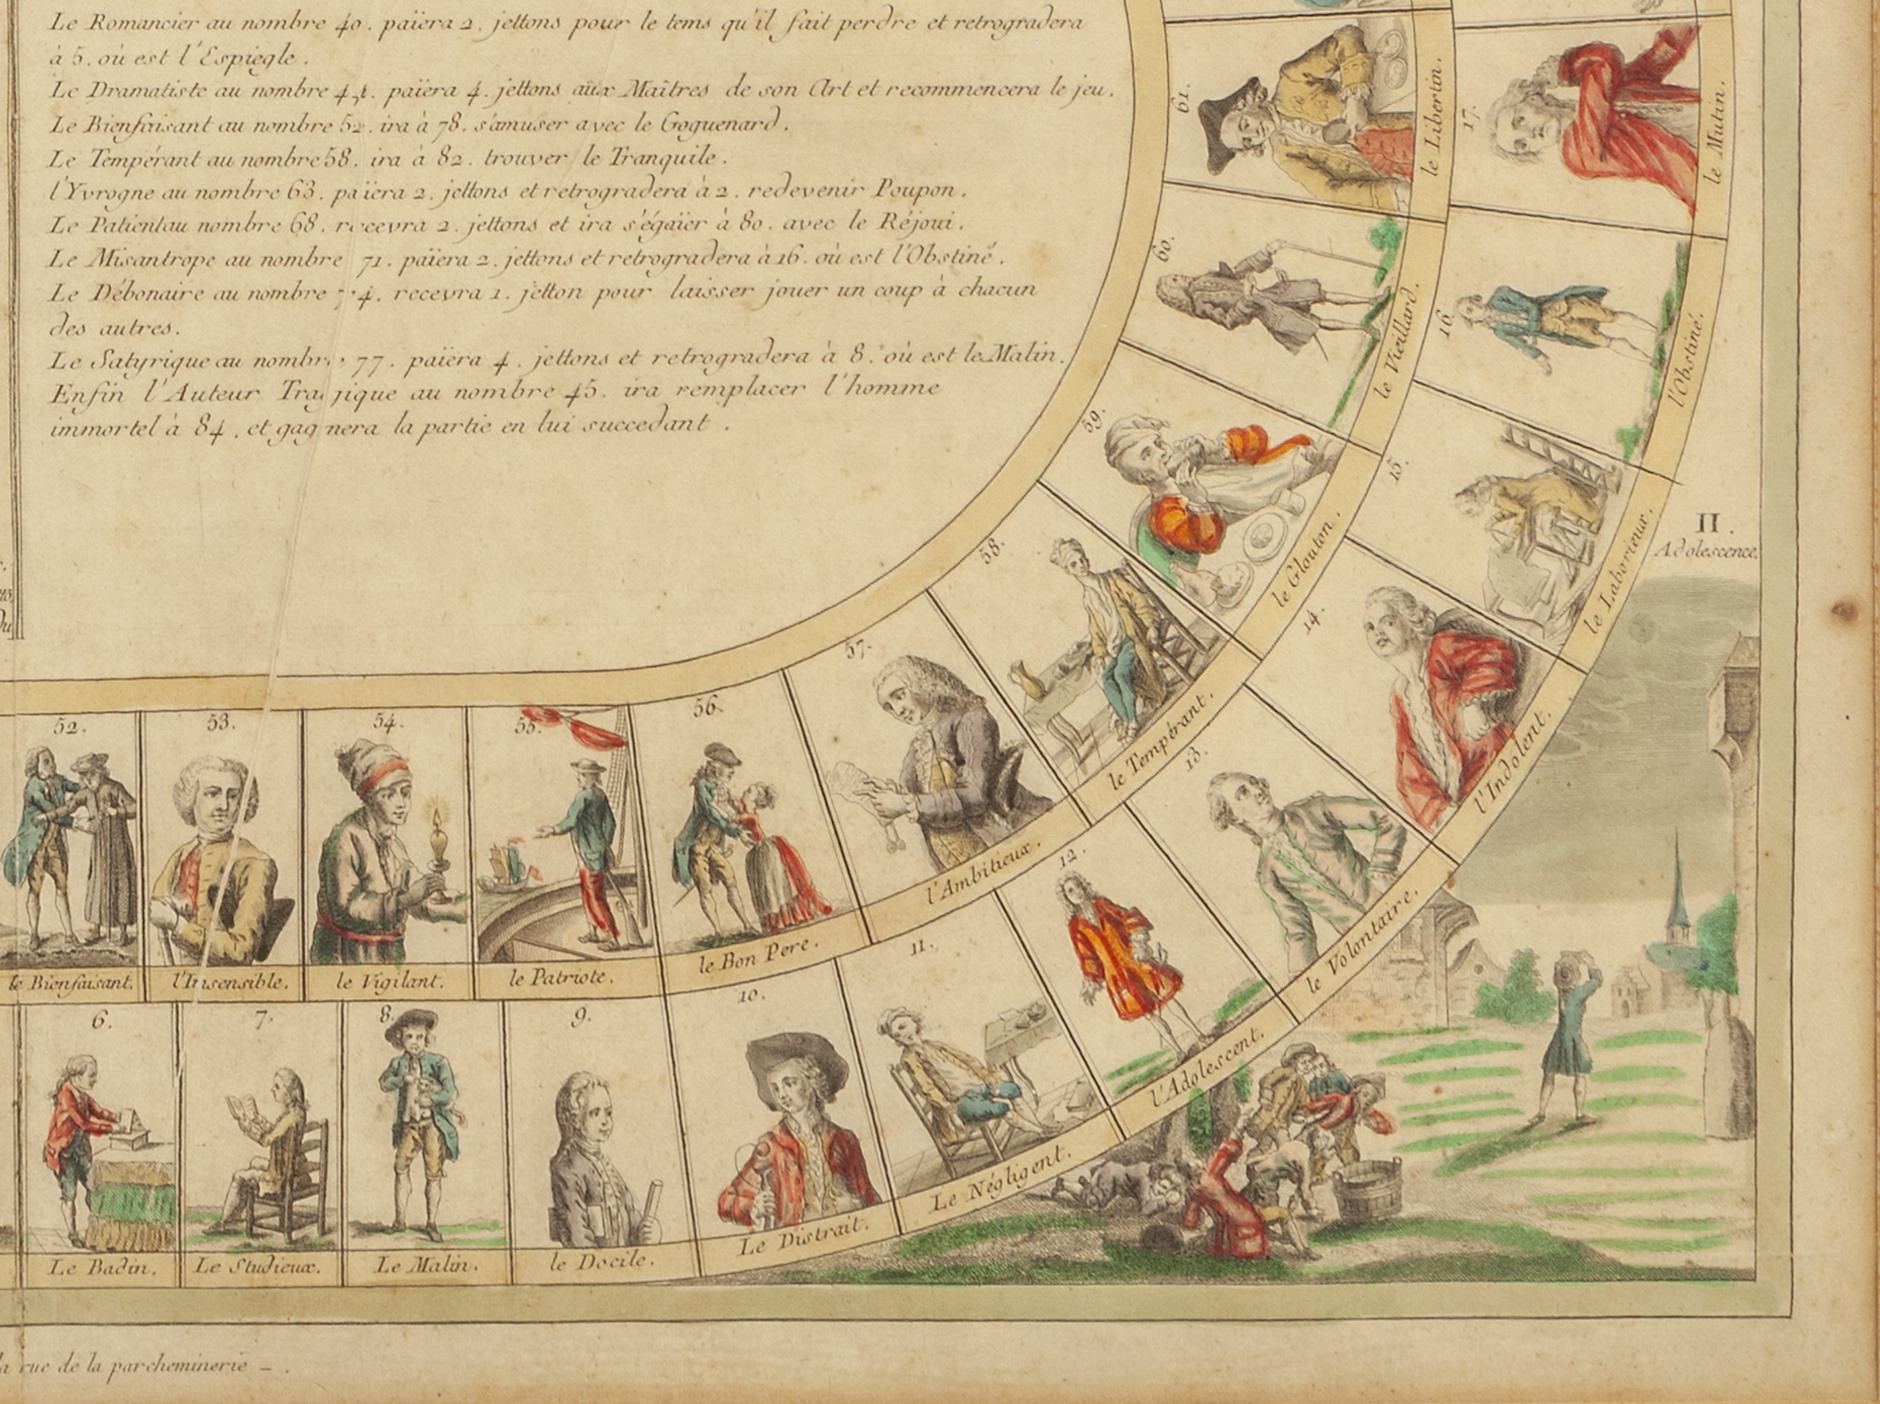 Le Romancier au nombre 40. païera 2. jettons pour le tems qu'il fait perdre et retrogradera
à 5. où est l'Espiegle.
Le Dramatiste au nombre païera 4. jettons aux Maîtres de son Art et recommencera le jeu.
Le Bienfaisant au nombre 52. ira à 78. s'amuser avec le Goguenard.
Le Tempérant au nombre 58. ira à 82. trouver le Tranquile.
l'Yvrogne au nombre 63. païera 2. jettons et retrogradera à 2. redevenir Poupon.
Le Patient au nombre 68. recevra 2. jettons et ira s'égaïer à 80. avec le Réjoui.
Le Misantrope au nombre 71. païera 2. jettons et retrogradera à 16. où est l'Obstiné.
Le Débonaire au nombre 74. recevra 1. jetton pour laisser jouer un coup à chacun
des autres.
Le Satyrique au nombre 77. païera 4. jettons et retrogradera à 8. où est le Malin.
Enfin l'Auteur Tragique au nombre 45. ira remplacer l'homme
immortel à 84. et gagnera la partie en lui succedant.
52.
le Bienfaisant.
53.
l'Insensible.
54.
le Vigilant.
55.
le Patriote.
56.
le Bon Pere.
57.
l'Ambitieux.
58.
le Tempérant.
59.
le Glouton.
60.
le Vieillard.
61.
le Libertin.
6.
Le Badin.
7.
Le Studieux.
8.
Le Malin.
9.
le Docile.
10.
Le Distrait.
11.
Le Négligent.
12.
l'Adolescent.
13.
le Volontaire.
14.
l'Indolent.
15.
le Laborieux.
16.
l'Obstiné.
17.
le Mutin.
II.
Adolescence.
la rue de la parcheminerie - .